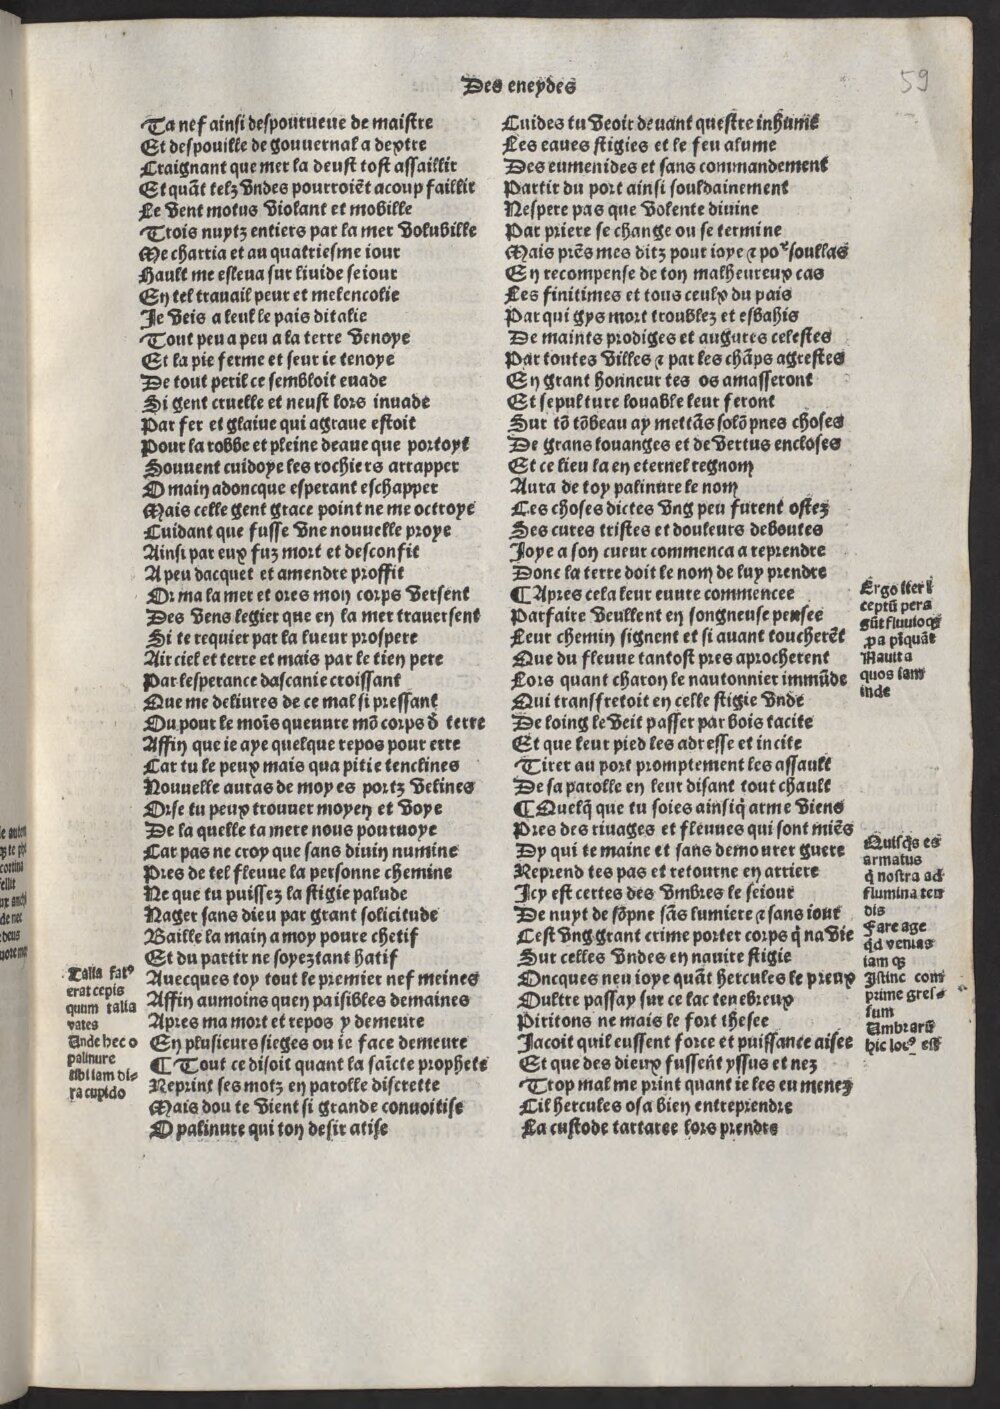 Des eneydes
59
Ta nef ainsi despourueue de maistre
Et despouille de gouuernal a dextre
Craignant que mer la deust tost assaillir
Et quãt telz vndes pourroiẽt acoup faillir
Le vent motus violant et mobille
Trois nuytz entiers par la mer volubille
Me charria et au quatriesme iour
Hault me esleua sur liuide seiour
En tel trauail peur et melencolie
Je veis a leul le pais ditalie
Tout peu a peu a la terre venoye
Et la pie ferme et seur ie tenoye
De tout peril ce sembloit euade
Si gent cruelle et neust lors inuade
Par fer et glaiue qui agraue estoit
Pour la robbe et pleine deaue que portoyt
Souuent cuidoye les rochiers atrapper
O main adoncque esperant eschapper
Mais celle gent grace point ne me octroye
Cuidant que fusse vne nouuelle proye
Ainsi par eux fuz mort et desconfit
A peu dacquet et amendre proffit
Or ma la mer et ores mon corps versent
Des vens legier que en la mer trauersent
Si te requier par la lueur prospere
Air ciel et terre et mais par le tien pere
Par lesperance dascanie croissant
Que me deliures de ce mal si pressant
Ou pour le moĩs queuure mõ corps d̃ terre
Affin que ie aye quelque repos pour erre
Car tu le peux mais qua pitie tenclines
Nouuelle auras de moy es portz velines
Orse tu peux trouuer moyen et voye
De la quelle ta mere nous pouruoye
Car pas ne croy que sans diuin numine
Pres de tel fleuue la personne chemine
Ne que tu puissez la stigie palude
Nager sans dieu par grant solicitude
Baille la main a moy poure chetif
Et du partir ne soyez tant hatif
Auecques toy tout le premier nef meines
Affin aumoins quen paisibles demaines
Apres ma mort et repos y demeure
En plusieurs sieges ou ie face demeure
¶ Tout ce disoit quant la saĩcte prophete
Reprint ses motz en parolle discrette
Mais dou te vient si grande conuoitise
O palinure qui ton desir atise
Talia fatꝰ
erat cepis
quum talia
vates
Unde hec o
palinure
tibi iam di-
ra cupido
Cuides tu veoir deuant questre inhume
Les eaues stigies et le feu alume
Des eumenides et sans commandement
Partir du port ainsi souldainement
Nespere pas que volente diuine
Par priere se change ou se termine
Mais prẽs mes ditz pour ioye ⁊ poʳ soullas
En recompense de ton malheureux cas
Les finitimes et tous ceulx du pais
Par qui gys mort troublez et esbahis
De maints prodiges et augures celestes
Par toutes villes ⁊ par les chãps agrestes
En grant honneur tes os amasseront
Et sepulture louable leur feront
Sur tõ tõbeau ay mettãs solõpnes choses
De grans louanges et de vertus encloses
Et ce lieu la en eternel regnom
Aura de toy palinure le nom
Ces choses dictes vng peu furent ostez
Ses cures tristes et douleurs deboutes
Joye a son cueur commenca a reprendre
Donc la terre doit le nom de luy prendre
¶ Apres cela leur euure commencee
Parfaire veullent en songneuse pensee
Leur chemin signent et si auant toucherẽt
Que du fleuue tantost pres aprocherent
Lors quant charon le nautonnier immũde
Qui transfretoit en celle stigie vnde
De loing le veit passer par bois tacite
Et que leur pied les adresse et incite
Tirer au port promptement les assault
De sa parolle en leur disant tout chault
¶ Quelq̃ que tu soies ainsiq̃ arme viens
Pres des riuages et fleuues qui sont miẽs
Dy qui te maine et sans demourer guere
Reprend tes pas et retourne en arriere
Icy est certes des vmbres le seiour
De nuyt de sõpne sãs lumiere ⁊ sans iour
Cest vng grant crime porter corps q̃ na vie
Sur celles vndes en nauire stigie
Oncques neu ioye quãt hercules le preux
Oultre passay sur ce lac tenebreux
Piritons ne mais le fort thesee
Jacoit quil eussent force et puissance aisee
Et que des dieux fussent yssus et nez
Trop mal me print quant ie les eu menez
Cil hercules osa bien entreprendre
La custode tartaree lors prendre
Ergo iter ĩ
ceptũ pera
gũt fluuioqꝫ
ꝓpĩquãt
Nauita
quos iam
inde
Quisq̃s es
armatus
q̃ nostra ad
flumina ten
dis
Fare age
qd̃ venias
iam qꝫ
Istinc com
prime gres-
sum
Umbrarũ
hic locꝰ est